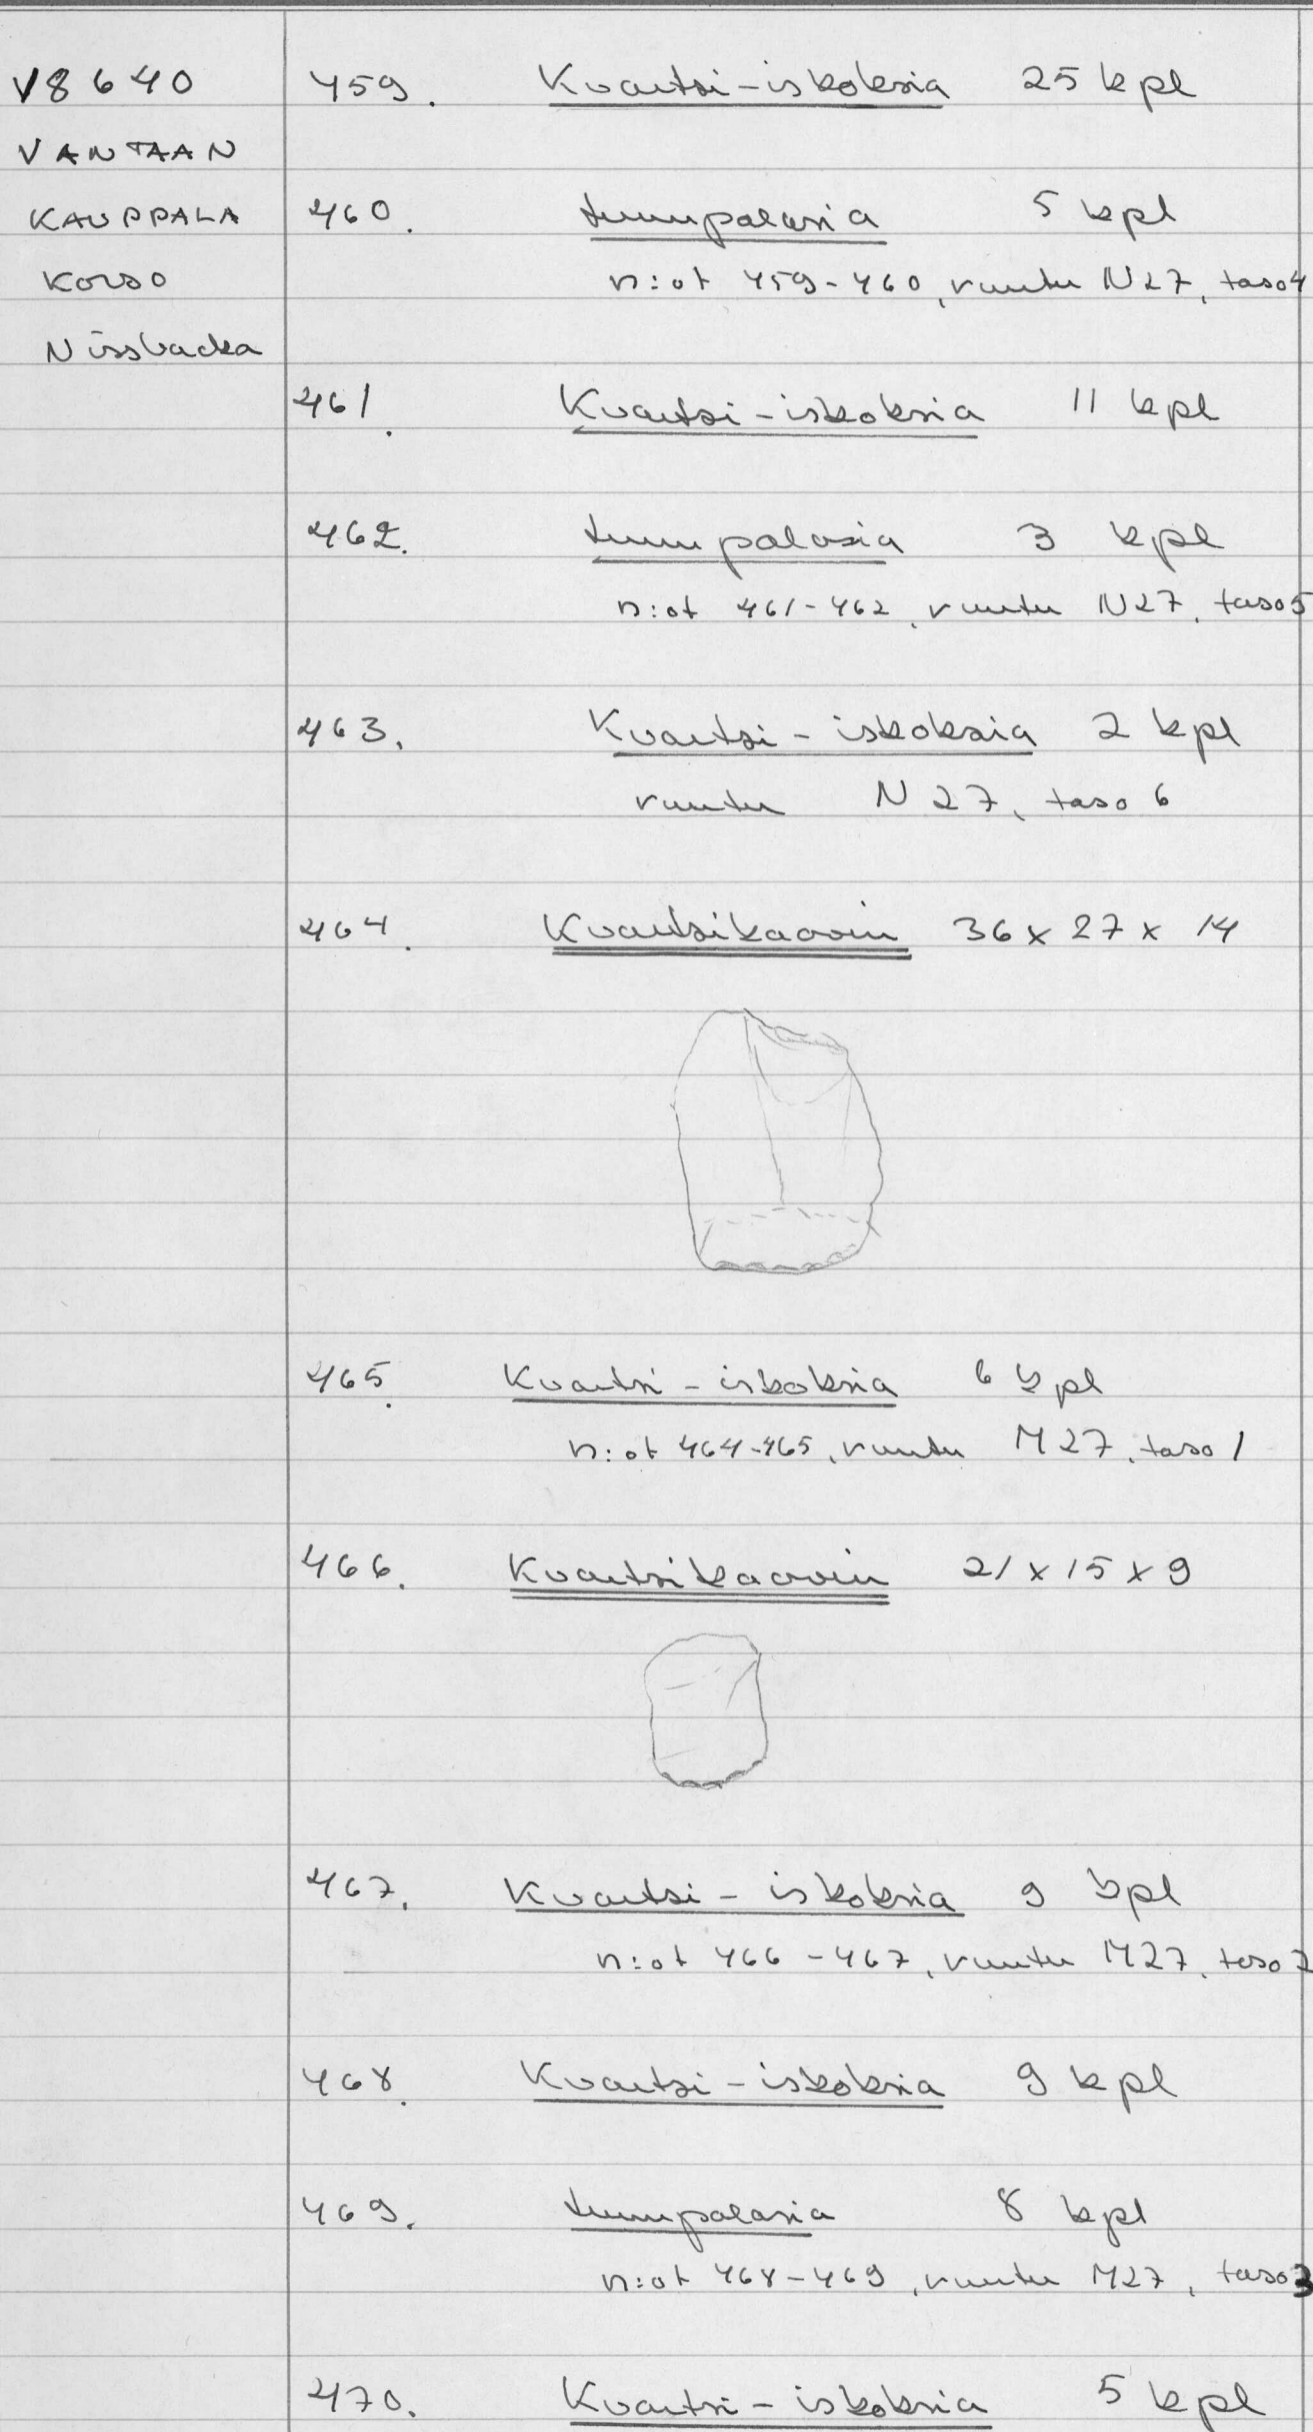 V8640
VANTAAN
KAUPPALA
KORSO
Nissbacka
459. Kvartsi-iskoksia 25 kpl
460. luunpalasia 5 kpl
n:ot 459-460, ruutu N27, taso 4
461. Kvartsi-iskoksia 11 kpl
462. luunpalasia 3 kpl
n:ot 461-462, ruutu N27, taso 5
463. Kvartsi-iskoksia 2 kpl
ruutu N27, taso 6
464. Kvartsikaavin 36 x 27 x 14
465. Kvartsi-iskoksia 6 kpl
n:ot 464-465, ruutu M27, taso 1
466. Kvartsikaavin 21 x 15 x 9
467. Kvartsi-iskoksia 9 kpl
n:ot 466-467, ruutu M27, taso 2
468. Kvartsi-iskoksia 9 kpl
469. luunpalasia 8 kpl
n:ot 468-469, ruutu M27, taso 3
470. Kvartsi-iskoksia 5 kpl